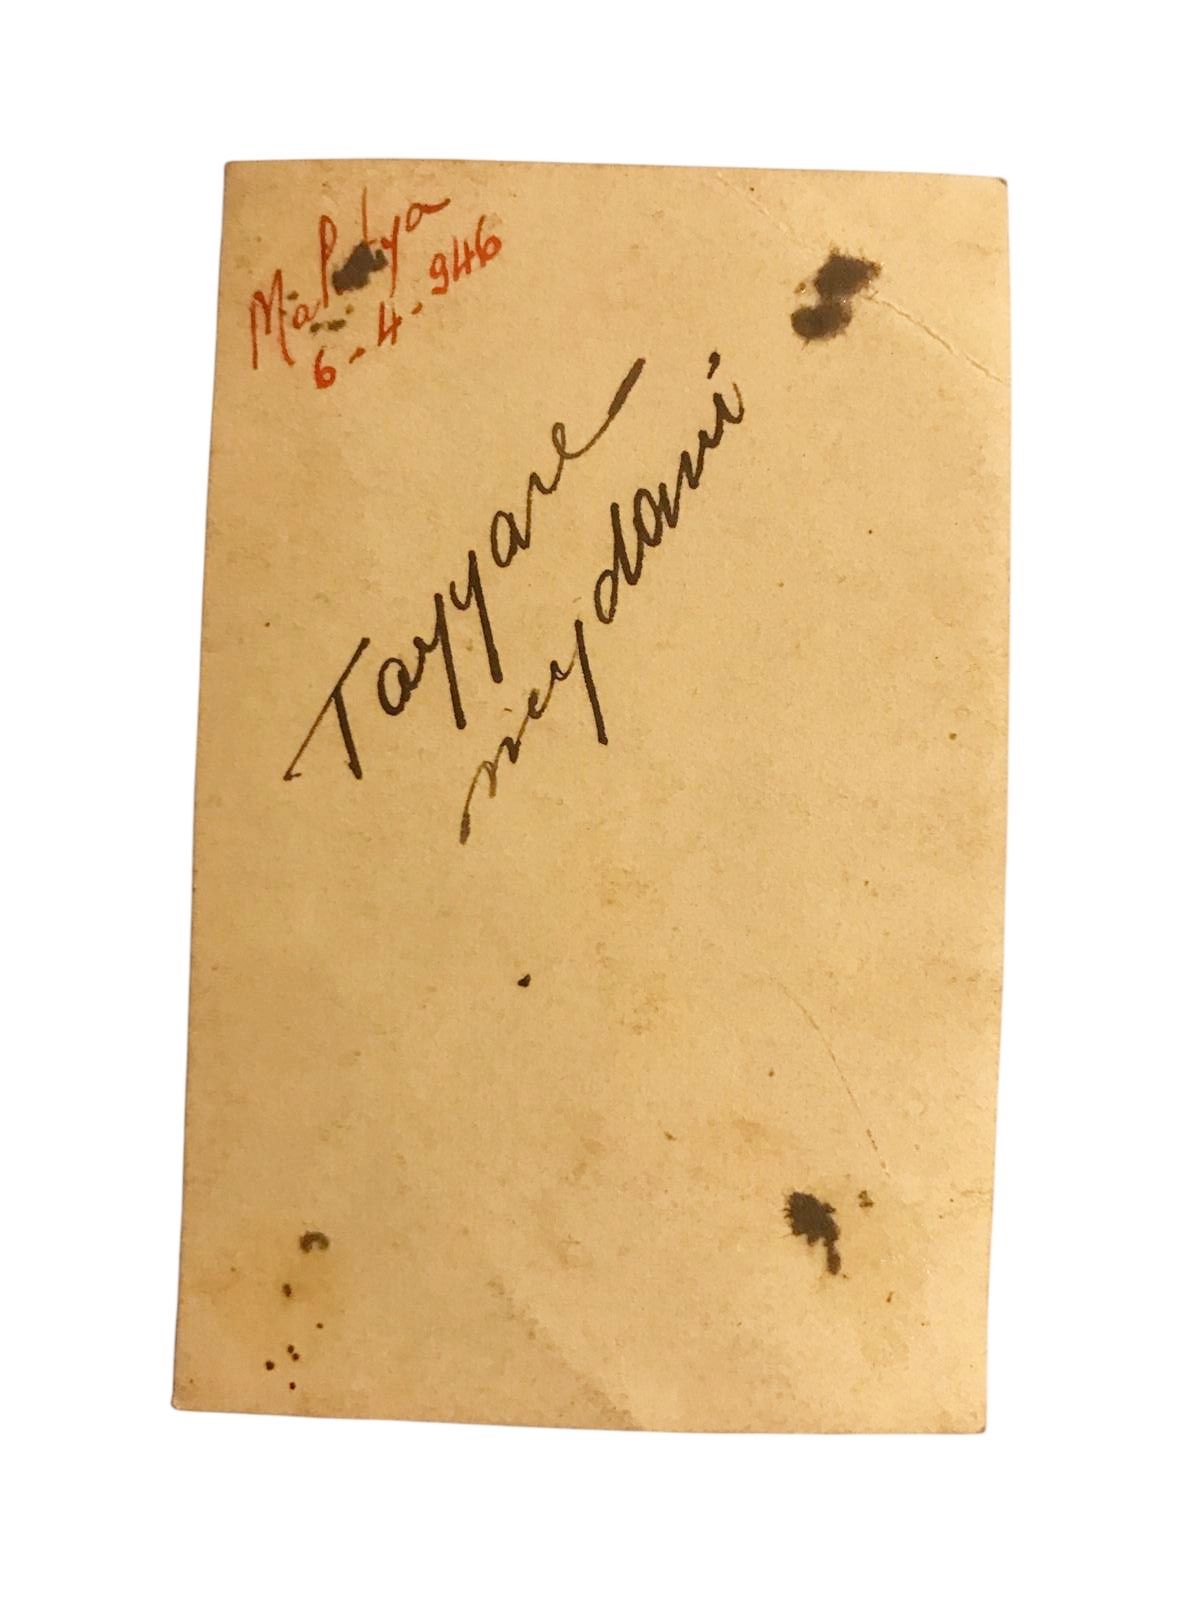 Malatya
6-4-946
Tayyare
meydanı